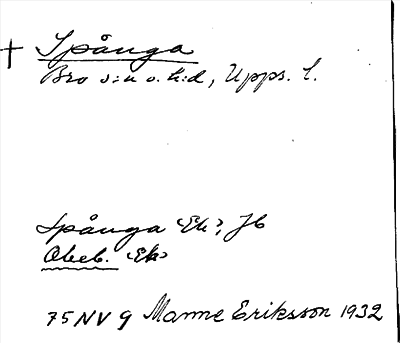 † Spånga
Bro s:n o. h:d, Upps. l.
Spånga Ek?, Jb
Obeb. Ek
75 NV 9 Manne Eriksson 1932